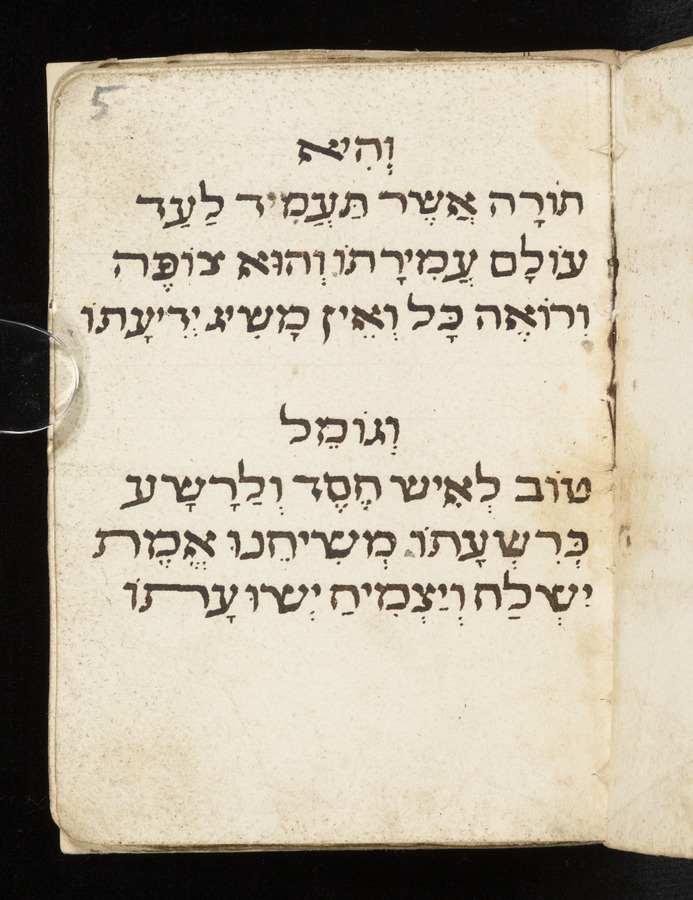 5
וְהִיא
תוֹרָה אֲשֶׁר תַּעֲמִיד לַעַד
עוֹלָם עֲמִירָתוֹ וְהוּא צוֹפֶה
וְרוֹאֶה כָּל וְאֵין מָשִׂיג יְדִיעָתוֹ
וְגוֹמֵל
טוֹב לְאִישׁ חֶסֶד וְלַרָשָׁע
כְּרִשְׁעָתוֹ מְשִׁיחֵנוּ אֱמֶת
יִשְׁלַח וְיַצְמִיחַ יְשׁוּעָתוֹ